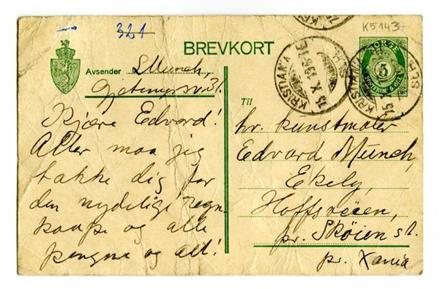 321
K5143
BREVKORT
Avsender I Munch,
Kjære Edvard!
Atter maa jeg
takke dig for
den nydelige regn
kaape og alle
pengene og alt!
Til
hr. kunstmaler
Edvard Munch,
Ekely,
Hoffsveien,
pr. Skøien st.
pr. Xania
KRISTIANIA
5